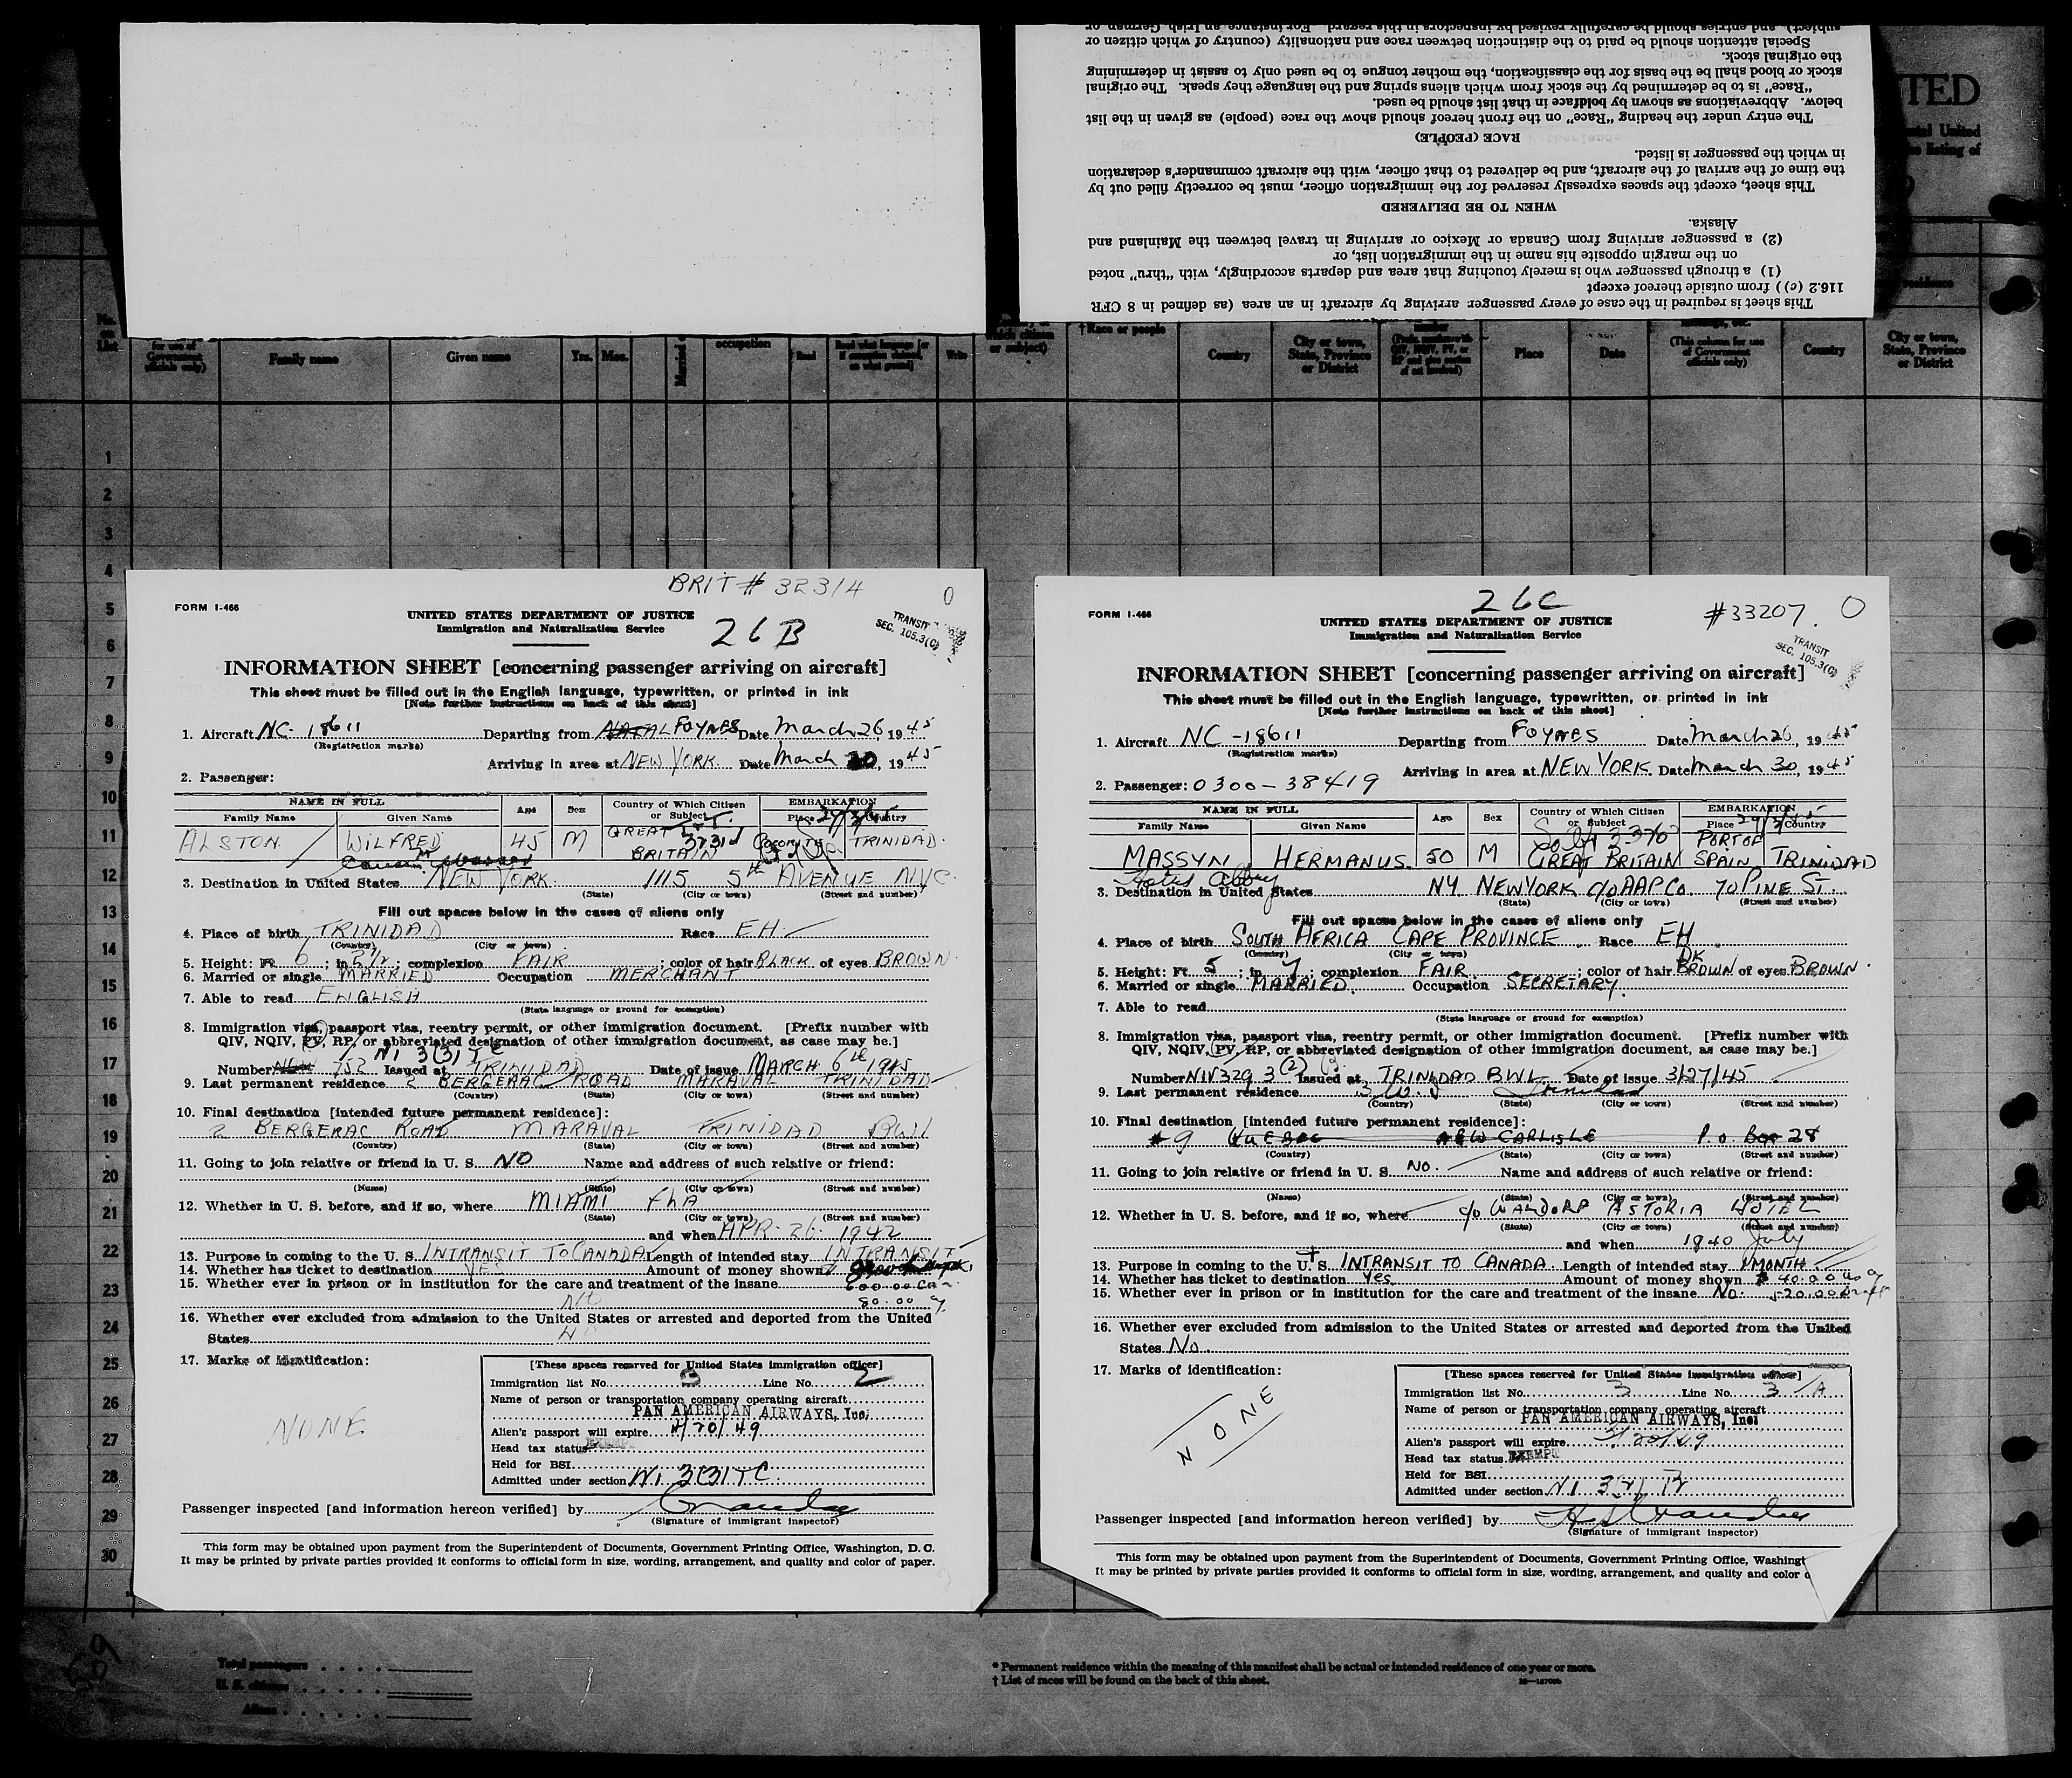 This sheet is required in the case of every passenger arriving by aircraft in an area (as defined in 8 CFR
116.2 (c)) from outside thereof except
(1) a through passenger who is merely touching that area and departs accordingly, with "thru" noted
on the margin opposite his name in the immigration list, or
(2) a passenger arriving from Canada or Mexico or arriving in travel between the Mainland and
Alaska.
WHEN TO BE DELIVERED
This sheet, except the spaces expressly reserved for the immigration officer, must be correctly filled out by
the time of the arrival of the aircraft, and be delivered to that officer, with the aircraft commander's declaration
in which the passenger is listed.
RACE (PEOPLE)
The entry under the heading "Race" on the front hereof should show the race (people) as given in the list
below. Abbreviations as shown by boldface in that list should be used.
"Race" is to be determined by the stock from which aliens spring and the language they speak. The original
stock or blood shall be the basis for the classification, the mother tongue to be used only to assist in determining
the original stock.
Special attention should be paid to the distinction between race and nationality (country of which citizen or
subject), and entries should be carefully revised by inspectors in this regard. For instance, an Irish, German, or
TED
Family name Given name Yrs. Mos. occupation Read Write
†Race or people Country City or town, State, Province or District Place Date (This column for use of Government officials only) Country City or town, State, Province or District
1
2
3
4
5
6
7
8
9
10
11
12
13
14
15
16
17
18
19
20
21
22
23
24
25
26
27
28
29
30
BRIT # 32314
0
FORM I-466
UNITED STATES DEPARTMENT OF JUSTICE
Immigration and Naturalization Service
26B
TRANSIT
SEC. 105.3(C)
INFORMATION SHEET [concerning passenger arriving on aircraft]
This sheet must be filled out in the English language, typewritten, or printed in ink
[Note further instructions on back of this sheet]
1. Aircraft NC-18611 Departing from NATAL FOYNES Date March 26, 1945
(Registration marks)
Arriving in area at NEW YORK Date March 30, 1945
2. Passenger:
NAME IN FULL Age Sex Country of Which Citizen or Subject EMBARKATION
Family Name Given Name Place Country
ALSTON WILFRED 45 M GREAT BRITAIN TRINIDAD
3. Destination in United States NEW YORK 1115 5th AVENUE NYC
(State) (City or town) (Street and number)
Fill out spaces below in the cases of aliens only
4. Place of birth TRINIDAD Race EH
(Country) (City or town)
5. Height: Ft. 6; in 2 1/2; complexion FAIR; color of hair BLACK of eyes BROWN
6. Married or single MARRIED Occupation MERCHANT
7. Able to read ENGLISH
(State language or ground for exemption)
8. Immigration visa, passport visa, reentry permit, or other immigration document. [Prefix number with
QIV, NQIV, PV, RP, or abbreviated designation of other immigration document, as case may be.]
Number 752 Issued at TRINIDAD Date of issue MARCH 6th 1945
9. Last permanent residence 2 BERGERAC ROAD MARAVAL TRINIDAD
(Country) (State) (City or town) (Street and number)
10. Final destination [intended future permanent residence]:
2 BERGERAC ROAD MARAVAL TRINIDAD BWI
(Country) (State) (City or town) (Street and number)
11. Going to join relative or friend in U. S. NO Name and address of such relative or friend:
(Name) (State) (City or town) (Street and number)
12. Whether in U. S. before, and if so, where MIAMI FLA
(State) (City or town) (Street and number)
and when APR. 26. 1942
13. Purpose in coming to the U. S. INTRANSIT TO CANADA Length of intended stay INTRANSIT
14. Whether has ticket to destination YES Amount of money shown
600.00
15. Whether ever in prison or in institution for the care and treatment of the insane
NO 80.00
16. Whether ever excluded from admission to the United States or arrested and deported from the United
States
17. Marks of identification:
NONE
[These spaces reserved for United States immigration officer]
Immigration list No. 3 Line No. 2
Name of person or transportation company operating aircraft
PAN AMERICAN AIRWAYS, Inc.
Alien's passport will expire 4/20/49
Head tax status EXEMPT
Held for BSI
Admitted under section NI 3(3) TC
Passenger inspected [and information hereon verified] by
(Signature of immigrant inspector)
This form may be obtained upon payment from the Superintendent of Documents, Government Printing Office, Washington, D. C.
It may be printed by private parties provided it conforms to official form in size, wording, arrangement, and quality and color of paper.
26C
#33207.
0
FORM I-466
UNITED STATES DEPARTMENT OF JUSTICE
Immigration and Naturalization Service
TRANSIT
SEC. 105.3(C)
INFORMATION SHEET [concerning passenger arriving on aircraft]
This sheet must be filled out in the English language, typewritten, or printed in ink
[Note further instructions on back of this sheet]
1. Aircraft NC-18611 Departing from FOYNES Date March 26, 1945
(Registration marks)
Arriving in area at NEW YORK Date March 30, 1945
2. Passenger: 0300-38419
NAME IN FULL Age Sex Country of Which Citizen or Subject EMBARKATION
Family Name Given Name Place Country
MASSYN HERMANUS 50 M GREAT BRITAIN PORT OF SPAIN TRINIDAD
3. Destination in United States NY NEW YORK C/O AAP Co. 70 PINE ST.
(State) (City or town) (Street and number)
Fill out spaces below in the cases of aliens only
4. Place of birth SOUTH AFRICA CAPE PROVINCE Race EH
(Country) (City or town)
5. Height: Ft. 5; in 7; complexion FAIR; color of hair DK BROWN of eyes BROWN
6. Married or single MARRIED. Occupation SECRETARY.
7. Able to read
(State language or ground for exemption)
8. Immigration visa, passport visa, reentry permit, or other immigration document. [Prefix number with
QIV, NQIV, PV, RP, or abbreviated designation of other immigration document, as case may be.]
Number NIV 329 3(2) Issued at TRINIDAD BWI Date of issue 3/27/45
9. Last permanent residence Trinidad
(Country) (State) (City or town) (Street and number)
10. Final destination [intended future permanent residence]:
#9 QUEBEC NEW CARLISLE P.O. Box 28
(Country) (State) (City or town) (Street and number)
11. Going to join relative or friend in U. S. NO. Name and address of such relative or friend:
(Name) (State) (City or town) (Street and number)
12. Whether in U. S. before, and if so, where c/o WALDORF ASTORIA HOTEL
(State) (City or town) (Street and number)
and when 1940 July
13. Purpose in coming to the U. S. INTRANSIT TO CANADA Length of intended stay 1 MONTH
14. Whether has ticket to destination Yes Amount of money shown $40.00
15. Whether ever in prison or in institution for the care and treatment of the insane No.
16. Whether ever excluded from admission to the United States or arrested and deported from the United
States No.
17. Marks of identification:
NONE
[These spaces reserved for United States immigration officer]
Immigration list No. 3 Line No. 3
Name of person or transportation company operating aircraft
PAN AMERICAN AIRWAYS, Inc.
Alien's passport will expire
Head tax status EXEMPT
Held for BSI
Admitted under section
Passenger inspected [and information hereon verified] by
(Signature of immigrant inspector)
This form may be obtained upon payment from the Superintendent of Documents, Government Printing Office, Washingt
It may be printed by private parties provided it conforms to official form in size, wording, arrangement, and quality and color
509
Total passengers
U. S. citizens
Aliens
* Permanent residence within the meaning of this manifest shall be actual or intended residence of one year or more.
† List of races will be found on the back of this sheet.